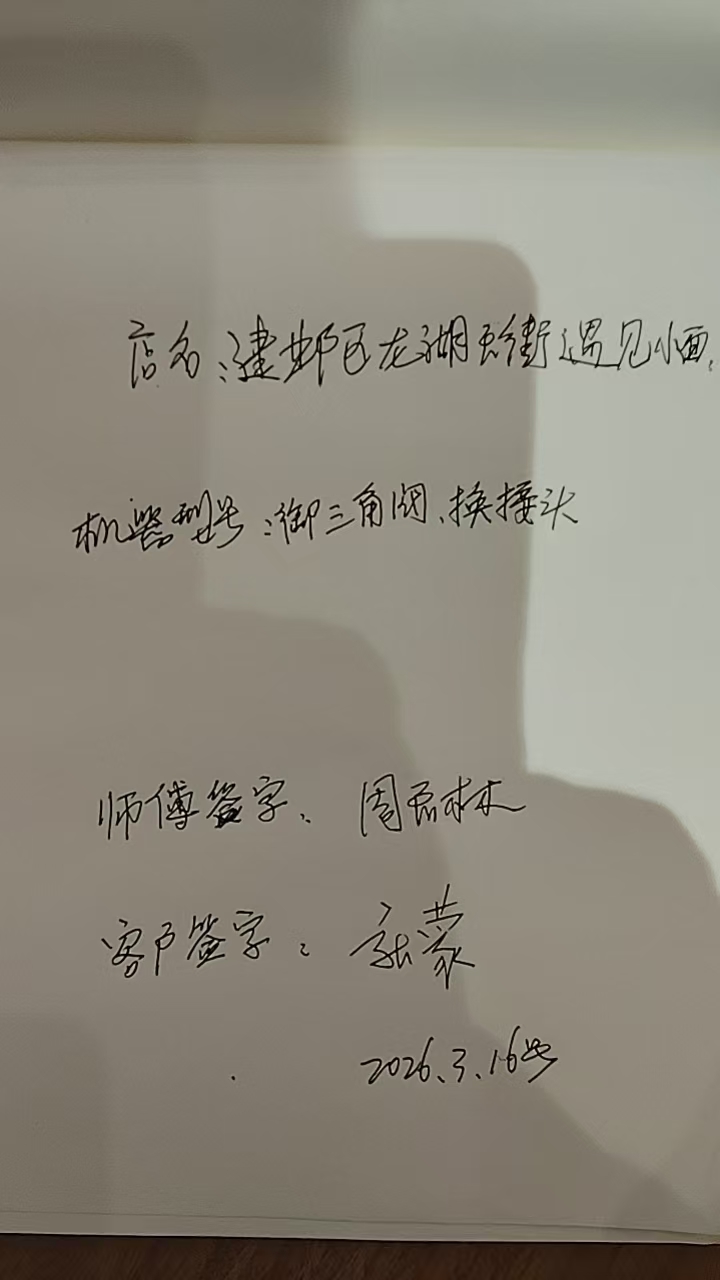 店名:建邺区龙湖天街遇见小面.
机器型号:御三角阀、换接头
师傅签字: 周磊林
客户签字: 蒙
2026.3.16号